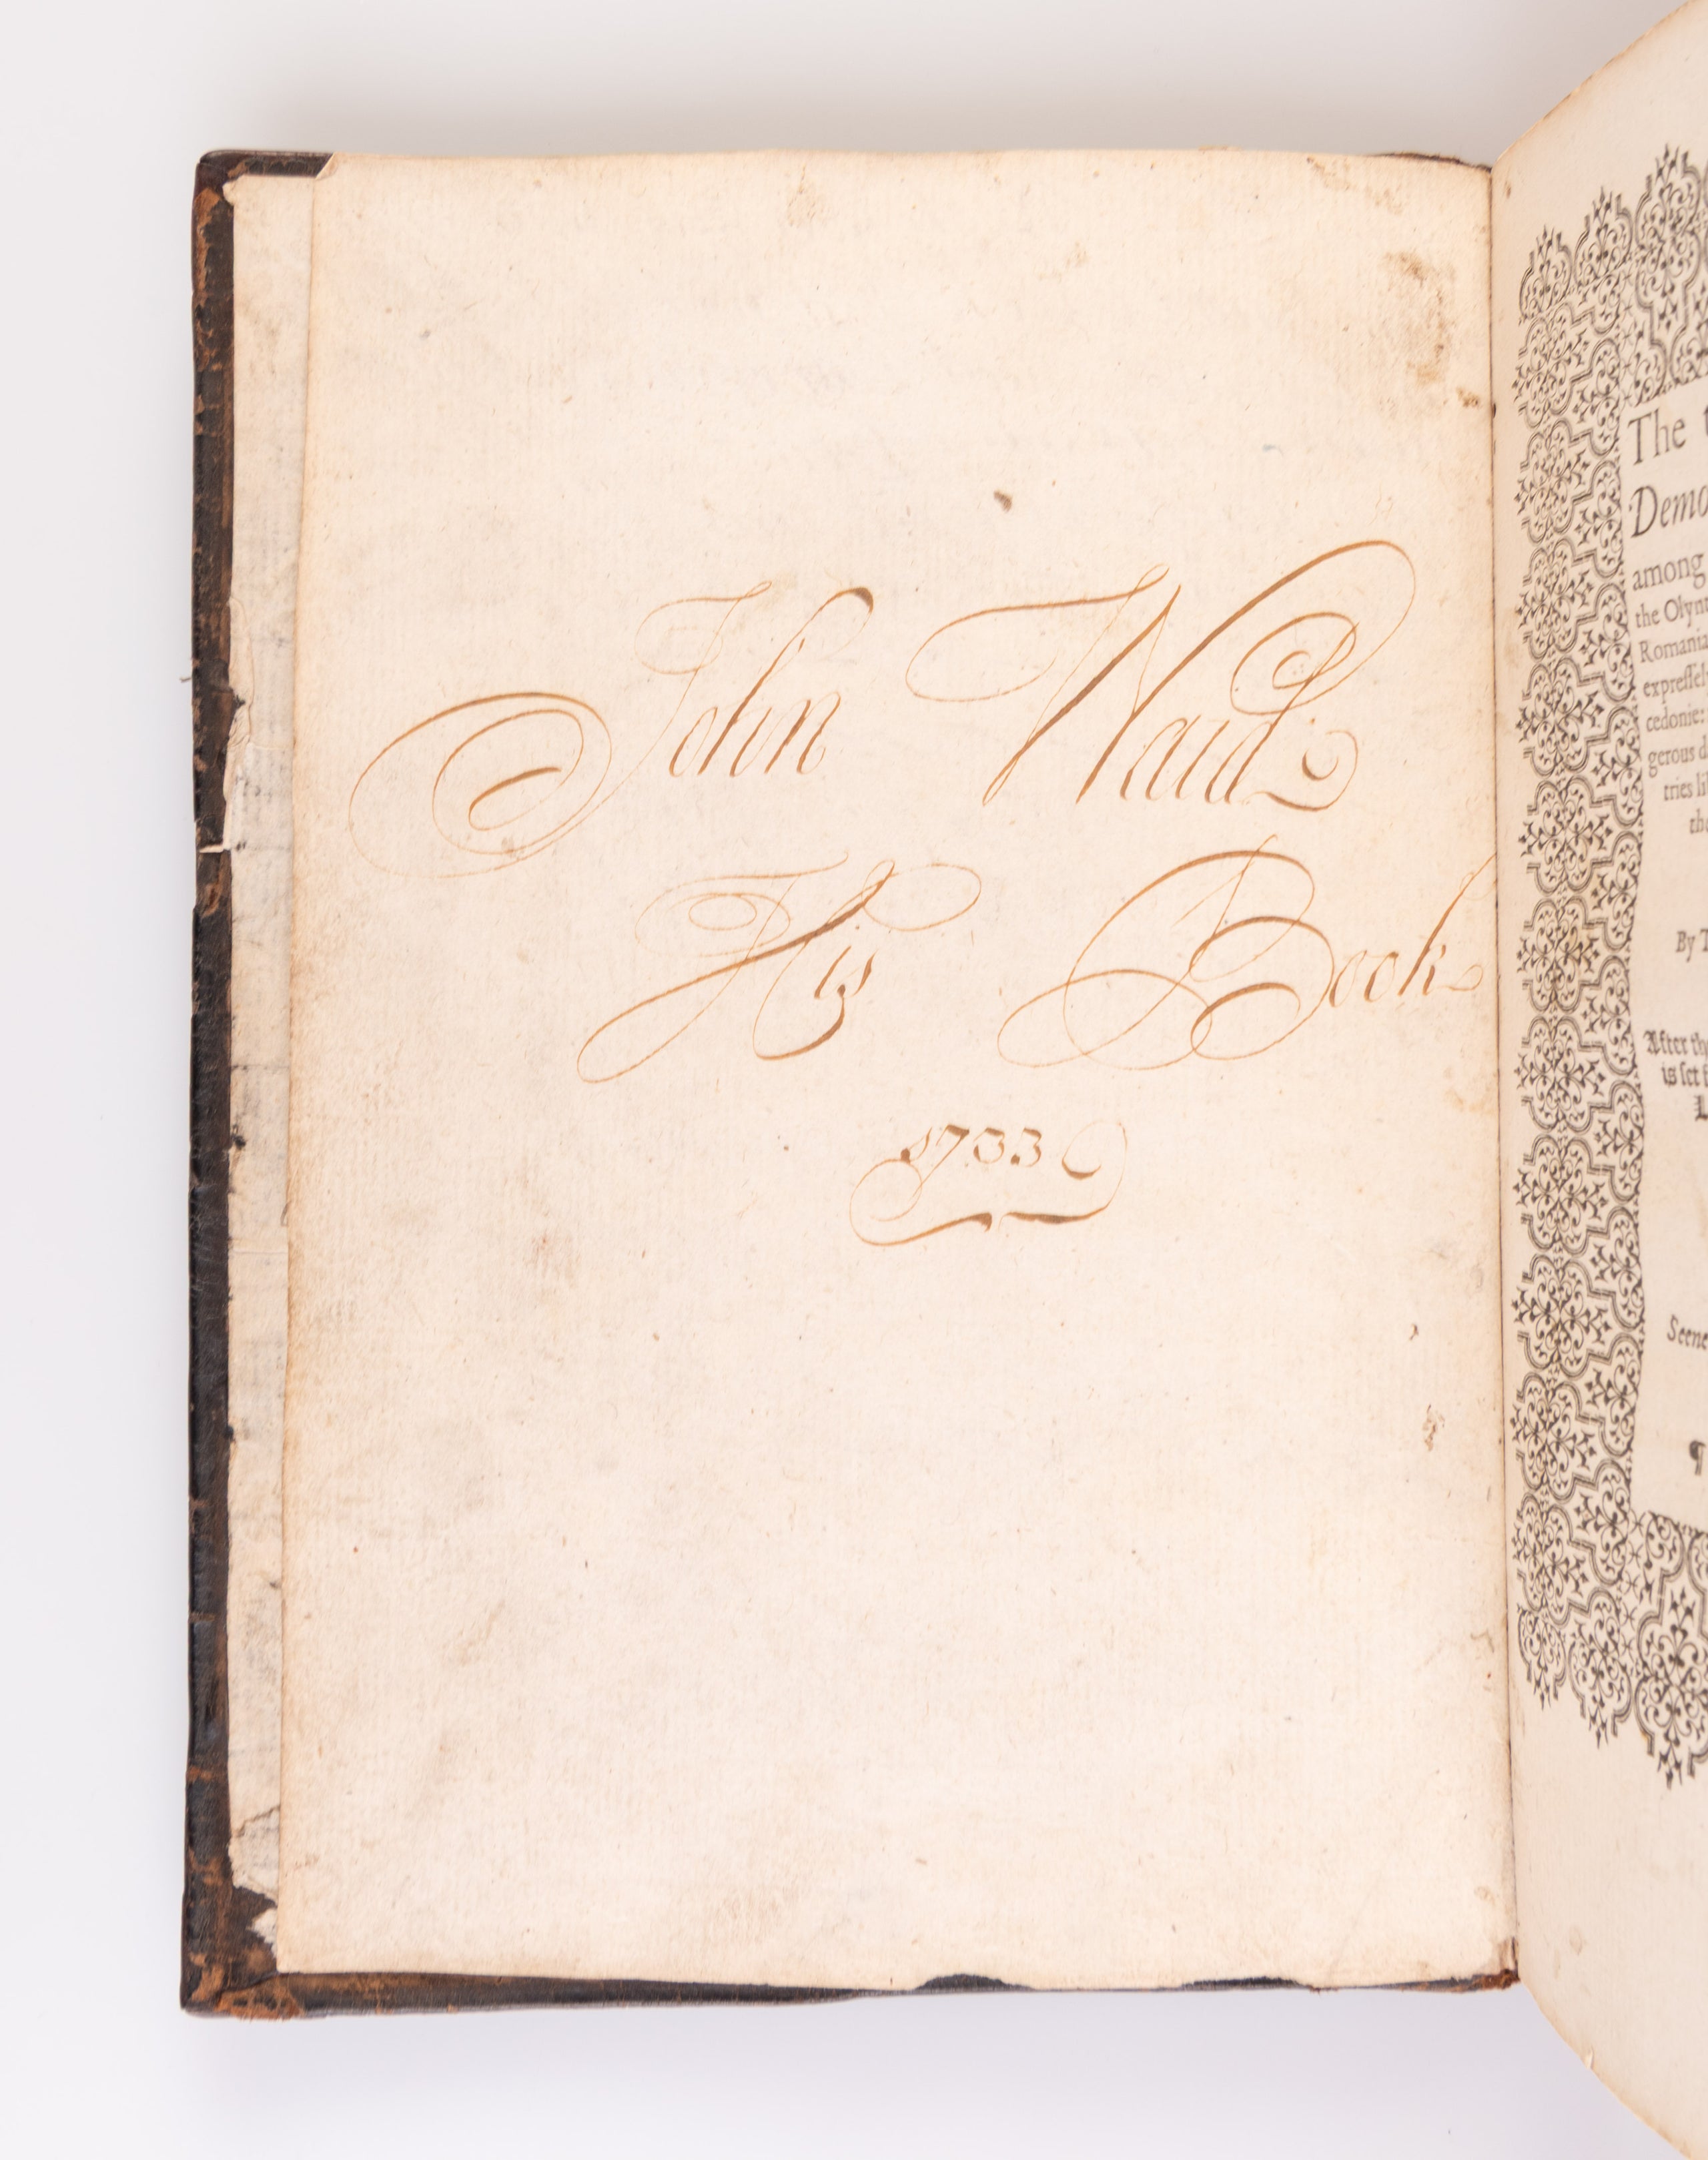 John Ward
His Book
1733
The
Demo
among
the Olyn
Romania
expreſſely
cedonie:
gerous d
tries li
tha
By T
After the
is ſet f
L
Seene
¶